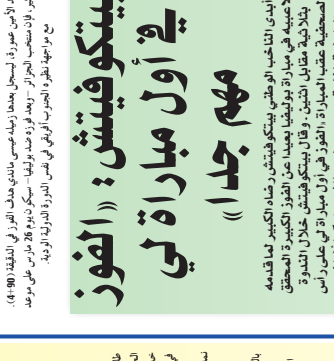 الأمين عمورة، ليسجل بعدها زميله عيسى ماندي هدف الفوز في الدقيقة (90+4).
فإن منتخب الجزائر - وبعد فوزه ضد بوليفيا - سيكون يوم 26 مارس على موعد
مع مواجهة نظيره الجنوب افريقي في نفس الدورة الدولية الودية.
بيتكوفيتش: «الفوز
في أول مباراة لي
مهم جدا»
أبدى الناخب الوطني بيتكوفيتش رضاه الكبير لما قدمه
لاعبيه في مباراة بوليفيا بعيدا عن الفوز الكبير المحقق
بثلاثية مقابل اثنين. وقال بيتكوفيتش خلال الندوة
الصحفية عقب المباراة: الفوز في أول مباراة لي على رأس